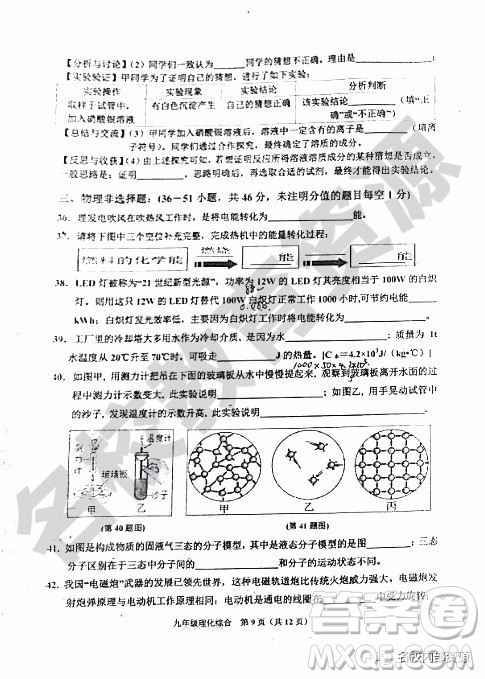 【分析与讨论】(2)同学们一致认为______同学的猜想不正确。理由是______;
【实验验证】甲同学为了证明自己的猜想,进行了如下实验:
实验操作 实验现象 实验结论 分析判断
取样于试管中, 有白色沉淀产生 自己的猜想正确 该实验结论______(填“正
加入硝酸银溶液 确”或“不正确”)
【总结与交流】(3)甲同学加入硝酸银溶液后,溶液中一定含有的离子是______(填离
子符号)。同学们合作探究最终得出了正确结论。
【反思与收获】(4)由上述探究可知,若想证明反应所得溶液成分的某种猜想是否成立,
一般思路是:证明______、______。思路明确后,再选取合适的试剂,最终才能得出正确的实验结论。
三、物理非选择题:(36—51小题,共46分,未注明分值的题目每空1分)
36. 理发电吹风在吹热风工作时,是将电能转化为______。
37. 请将下图中三个空位补充完整,完成热机中的能量转化过程:
燃料的化学能 燃烧 能 燃气 能
38. LED灯被称为“21世纪新型光源”,功率为12W的LED灯其亮度相当于100W的白炽
灯。则用这只12W的LED灯替代100W白炽灯正常工作1000小时,可节约电能______
kWh;白炽灯发光效率低,主要因为白炽灯工作时将电能转化为______。
39. 工厂里的冷却塔大多用水作为冷却介质,是因为水______;质量为1t
水温度从20℃升至70℃时,可吸走______J的热量。[C水=4.2×10³J/(kg•℃)]
40. 如图甲,用测力计把吊在下面的玻璃板从水中慢慢提起来,观察到玻璃板离开水面的过
程测力计示数变大,此实验说明______;如图乙,用手晃动试管中
的沙子,发现温度计的示数升高,此实验说明______。
玻璃板 温度计
甲 乙 甲 乙 丙
(第40题图) (第41题图)
41. 如图是构成物质的固液气三态的分子模型,其中是液态分子模型的图是______;三态
分子区别在于三态中分子间的______和分子的运动状态不同。
42. 我国“电磁炮”武器的发展已领先世界,这种电磁轨道炮比传统火炮威力强大。电磁发
射炮弹原理与电动机工作原理相同。那么,电动机是通电的线圈在______中受力旋转;
九年级理化综合 第9页(共12页)
名校教育资源